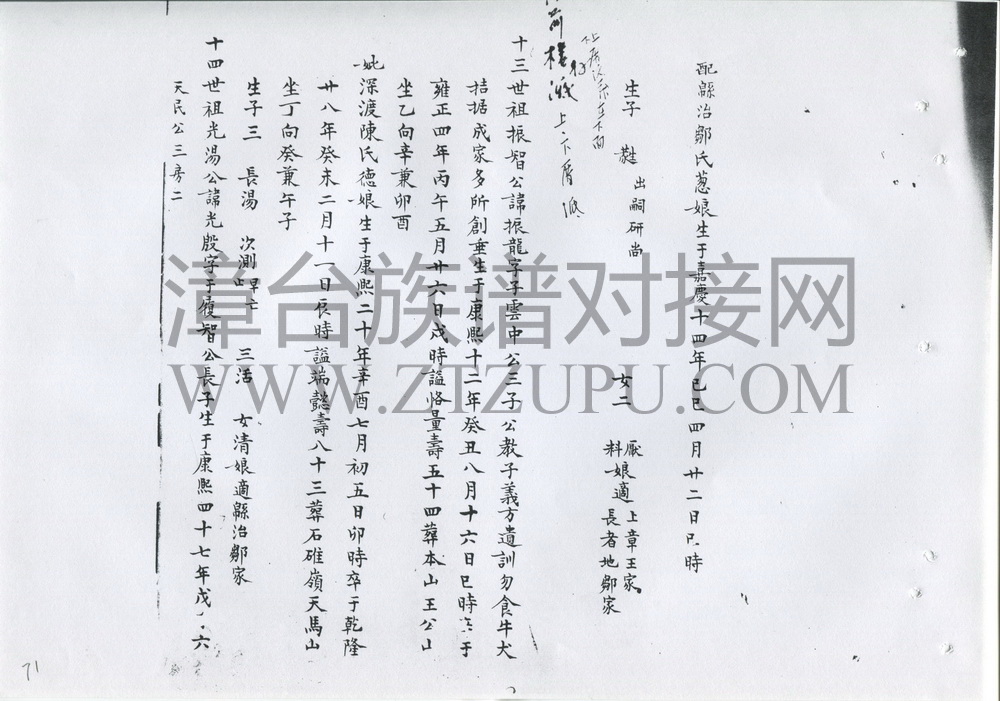 配縣治鄒氏蔥娘生于嘉慶十四年己巳四月廿二日巳時
生子 出嗣研尚 女二 厭娘適上章王家
料娘適長者地鄒家
荷樓
上下厝派
十三世祖振智公諱振龍字子雲中公三子公教子義方遺訓勿食牛犬
拮据成家多所創垂生于康熙十二年癸丑八月十六日巳時于
雍正四年丙午五月廿六日戌時謚恪量壽五十四葬本山王公山
坐乙向辛兼卯酉
妣深渡陳氏德娘生于康熙二十年辛酉七月初五日卯時卒于乾隆
廿八年癸未二月十一日辰時謚端懿壽八十三葬石碓嶺天馬山
坐丁向癸兼午子
生子三 長湯 次測早亡 三活 女清娘適縣治鄒家
十四世祖光湯公諱光殷字于履智公長子生于康熙四十七年戊六
天民公三房二
71
漳台族谱对接网
WWW.ZTZUPU.COM